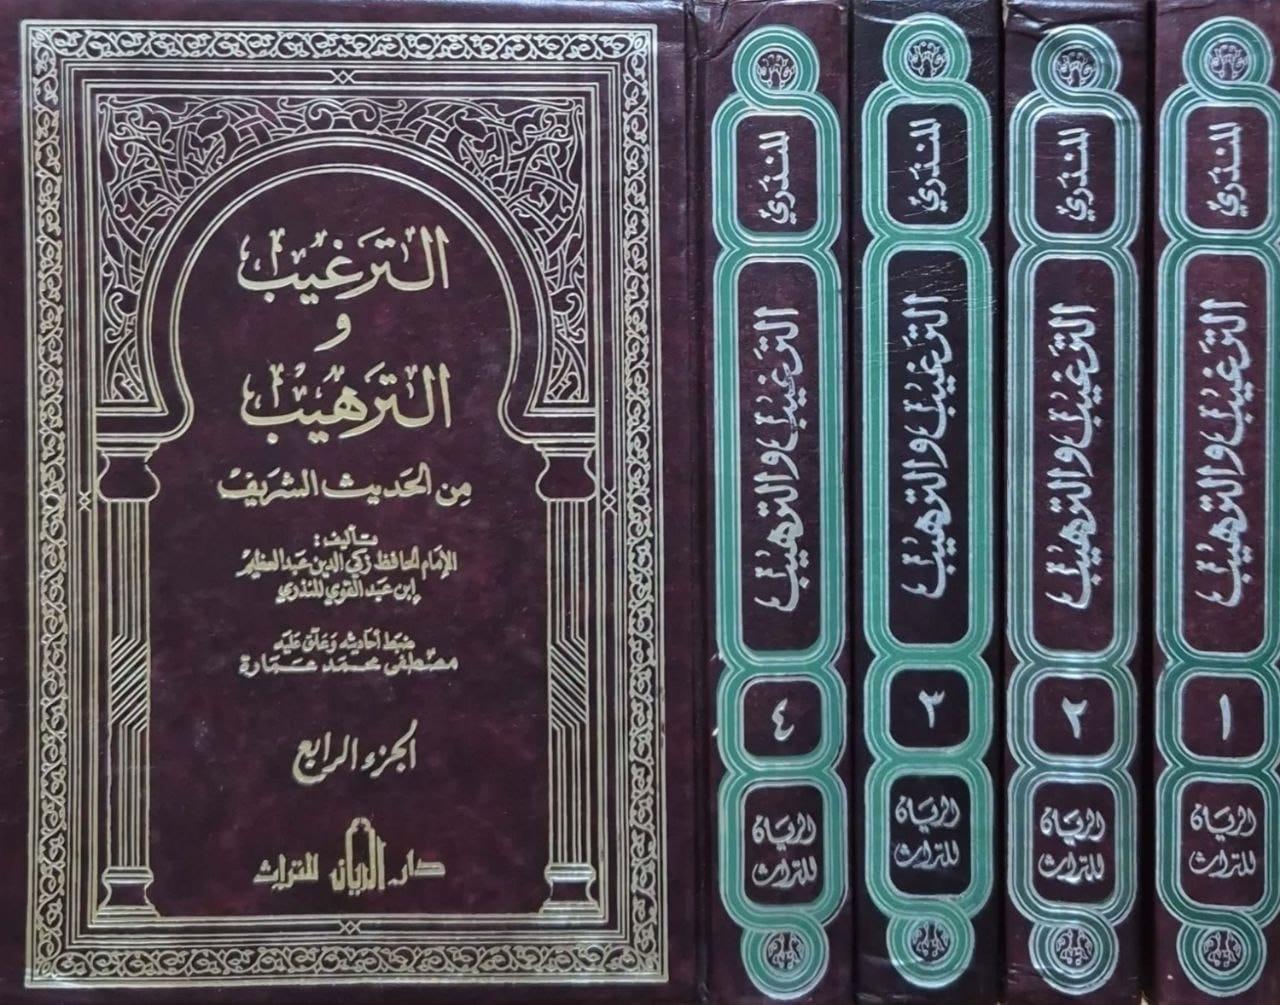 الترغيب
و
الترهيب
من الحديث الشريف
تأليف:
الإمام الحافظ زكي الدين عبد العظيم
ابن عبد القوي المنذري
ضبط أحاديثه وعلق عليه
مصطفى محمد عمارة
الجزء الرابع
دار الريان للتراث
للمنذري
الترغيب والترهيب
٤
الريان
للتراث
للمنذري
الترغيب والترهيب
٣
الريان
للتراث
للمنذري
الترغيب والترهيب
٢
الريان
للتراث
للمنذري
الترغيب والترهيب
١
الريان
للتراث